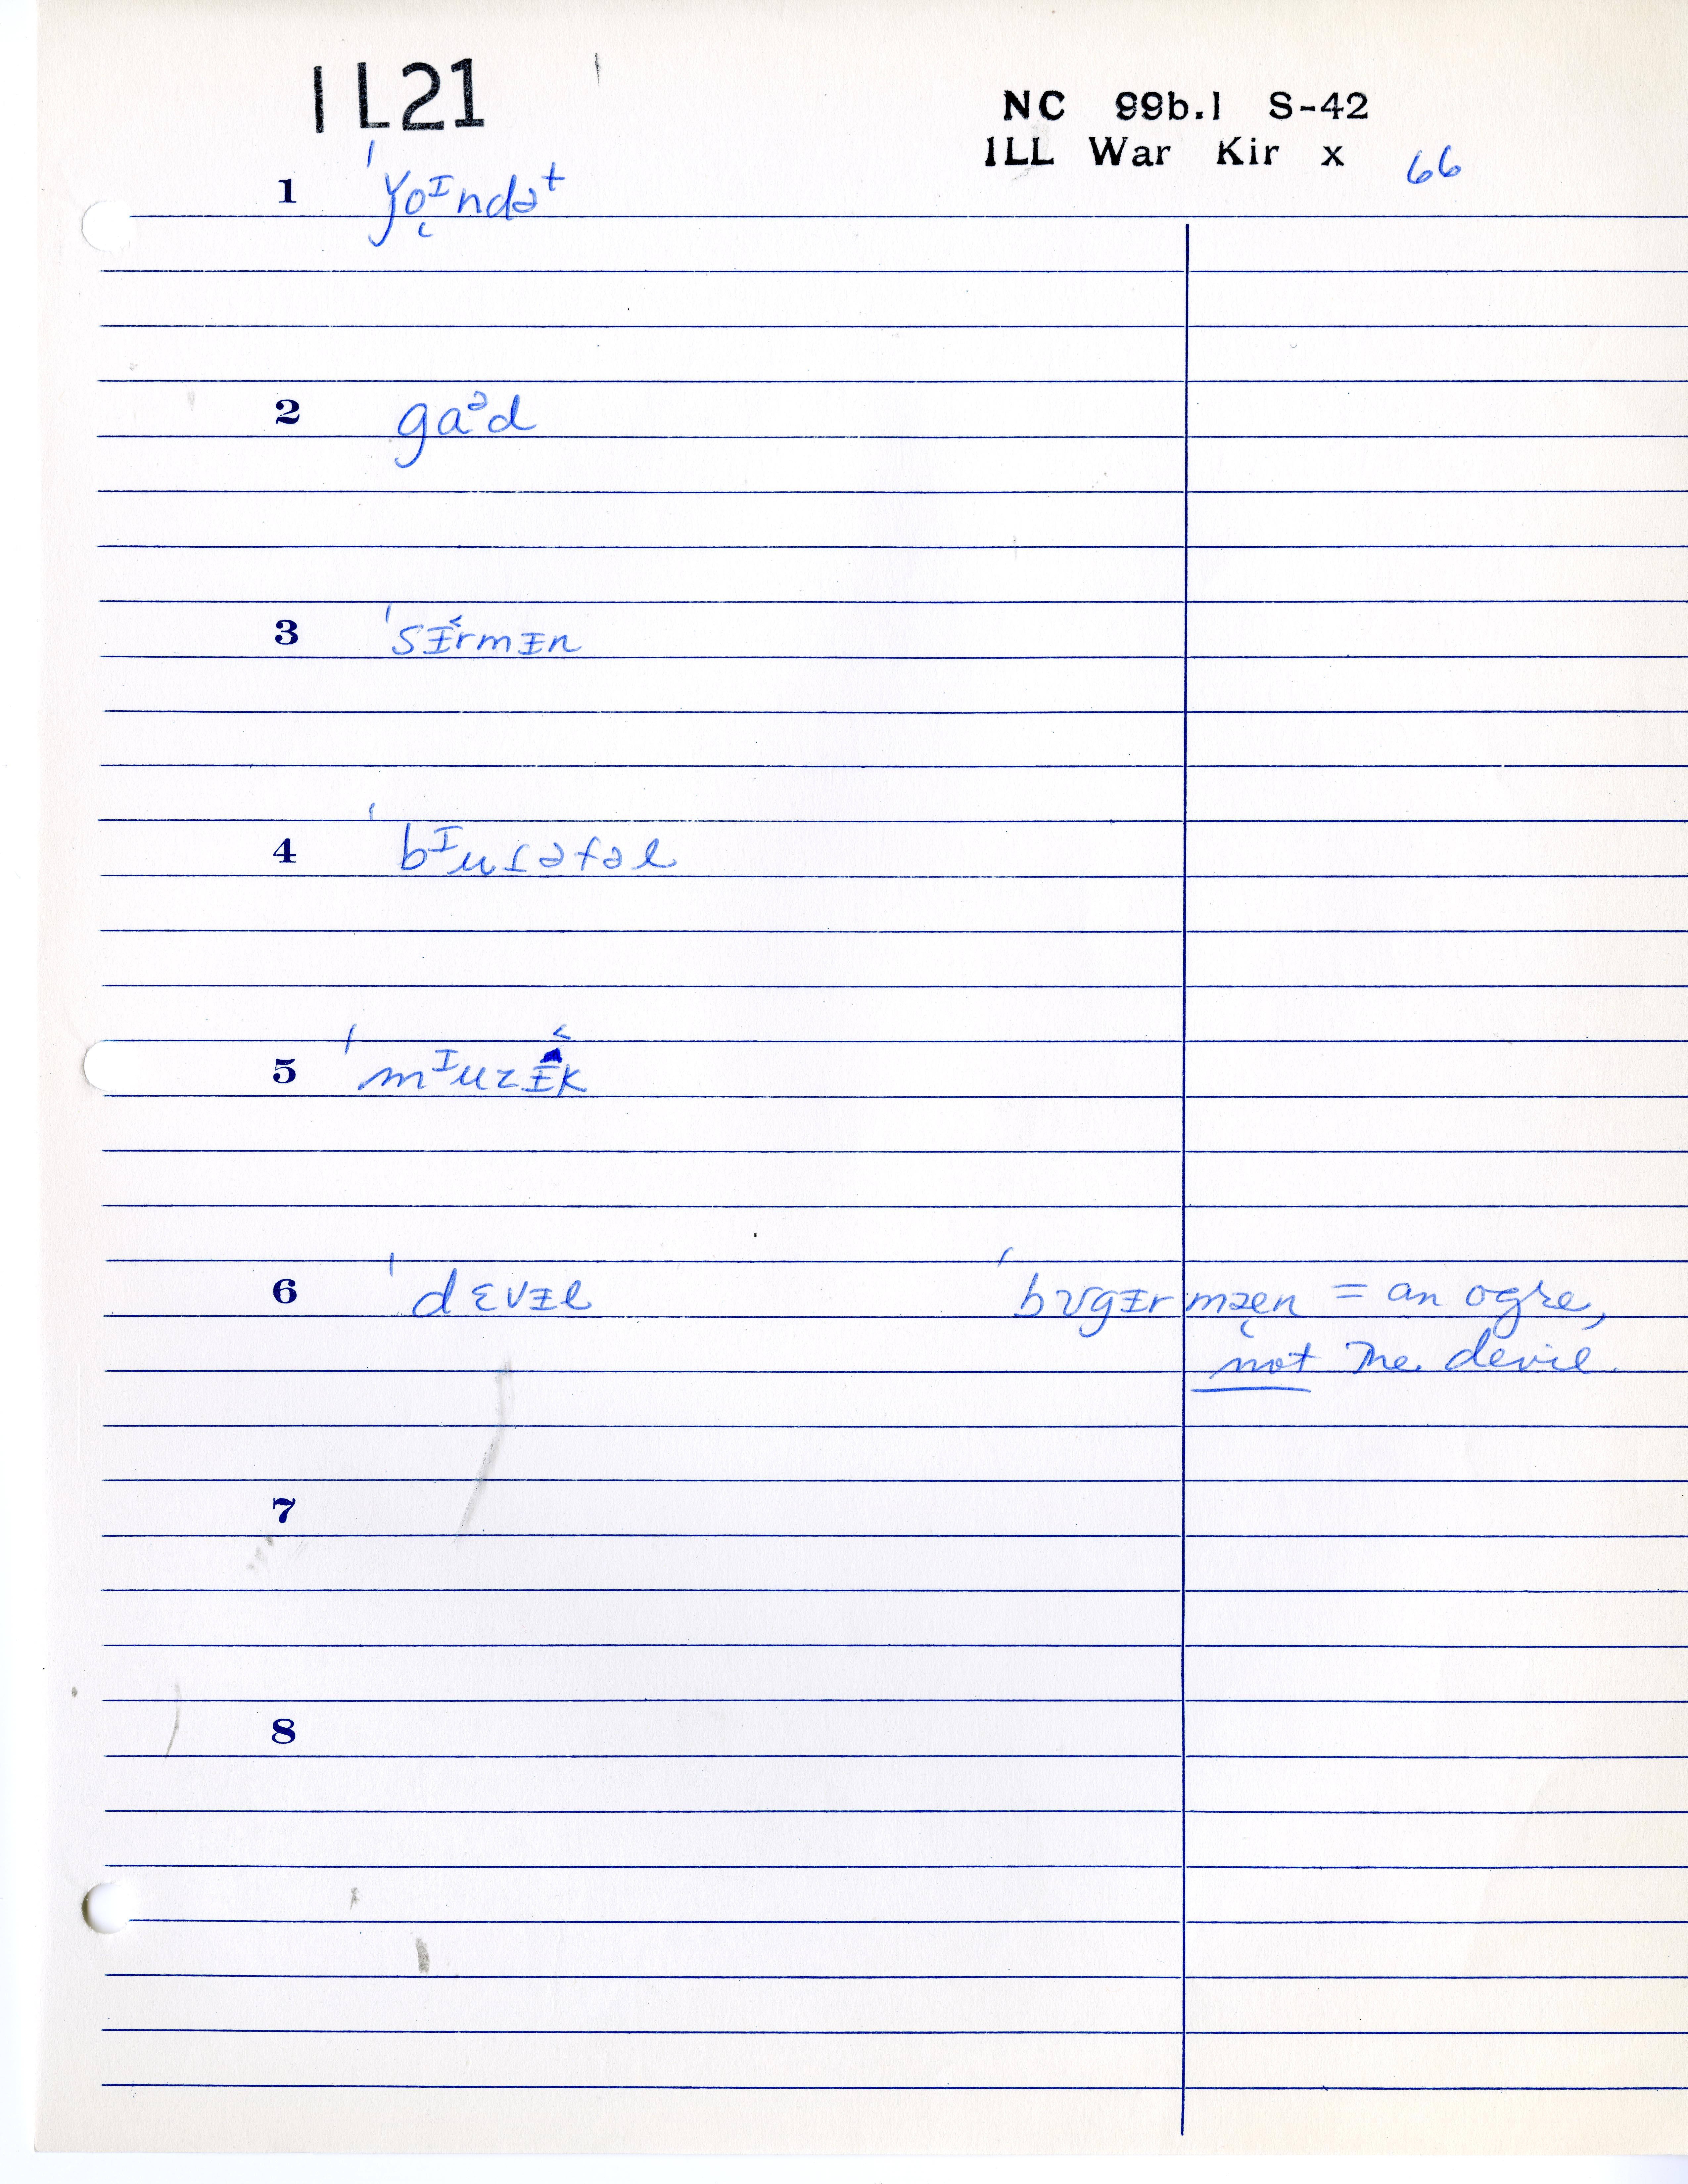 1L21
NC 99b.1 S-42
ILL War Kir x 66
1 ˈyo̜ᴵndəᵗ
2 gaᵊd
3 ˈsᵻ˂rmᵻn
4 ˈbᴵuɾəfəl
5 ˈmᴵuzᵻ˂k
6 ˈdɛvᵻl ˈbʊgᵻrmæ̜n = an ogre,
not the devil.
7
8